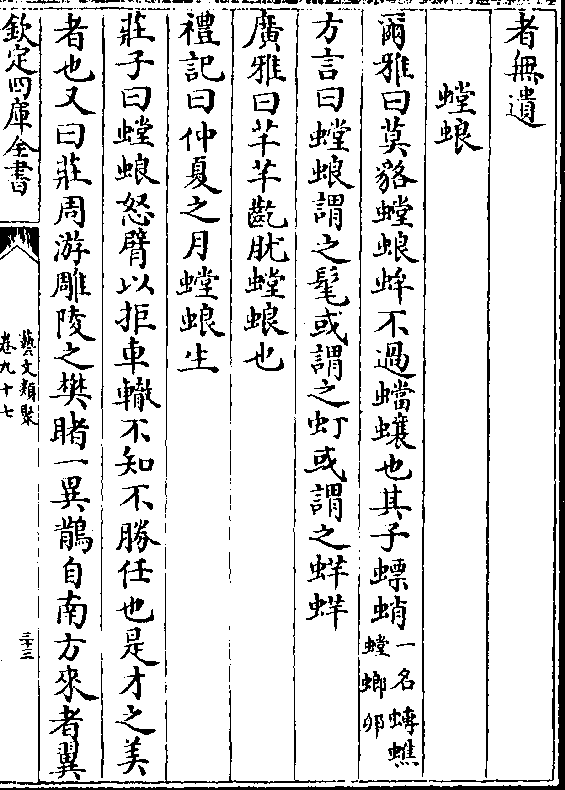 者無遺
螳蜋
爾雅曰莫貉螳蜋蛑不過蟷蠰也其子螵蛸一名蟳蟭螳螂卵
方言曰螳蜋謂之髦或謂之虰或謂之蛘蛘
廣雅曰芊芊齕肬螳蜋也
禮記曰仲夏之月螳蜋生
莊子曰螳蜋怒臂以拒車轍不知不勝任也是才之美
者也又曰莊周游雕陵之樊睹一異鵲自南方來者翼
欽定四庫全書
藝文類聚
卷九十七
三十三